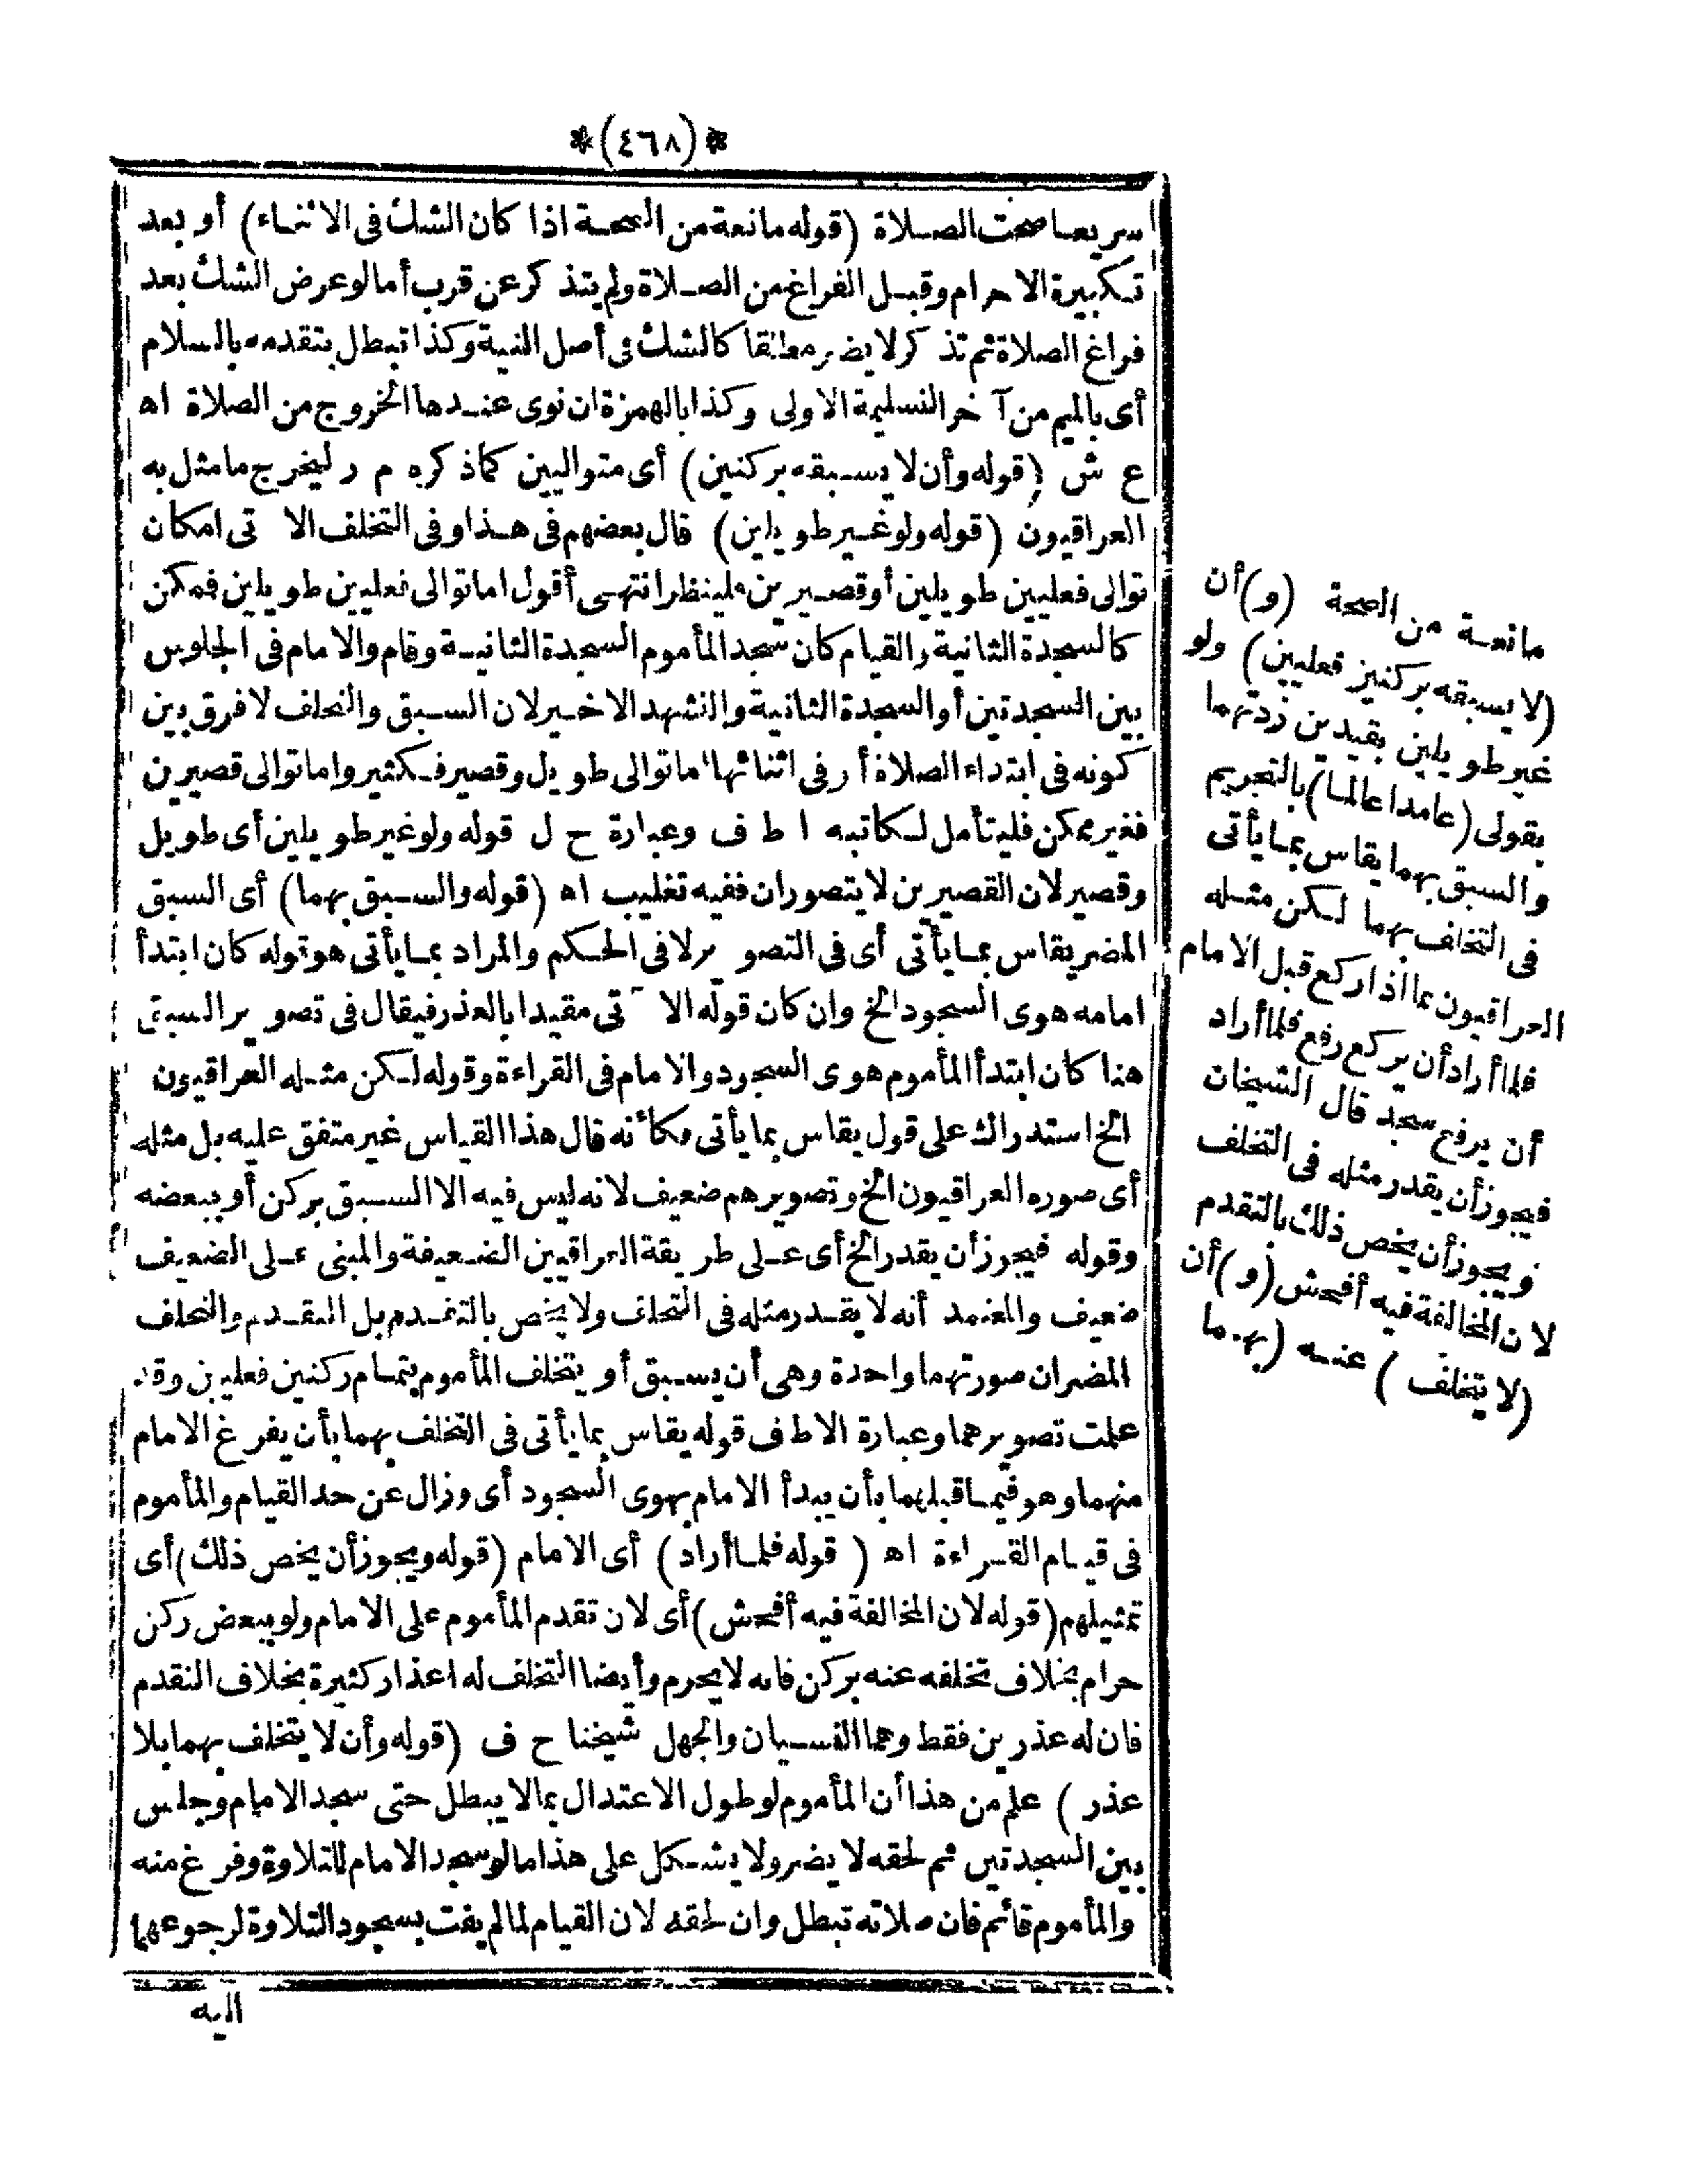 *(٤٦٨)*
سريعا صحت الصلاة (قوله مانعة من الصحة اذا كان الشك فى الاثناء) أو بعد
تكبيرة الاحرام وقبل الفراغ من الصلاة ولم يتذكر عن قرب أما لو عرض الشك بعد
فراغ الصلاة ثم تذكر لا يضر مطلقا كالشك فى أصل النية وكذا تبطل بتقدمه بالسلام
أى بالميم من آخر التسليمة الاولى وكذا بالهمزة ان نوى عندها الخروج من الصلاة اه
ع ش (قوله وأن لا يسبقه بركنين) أى متواليين كماذكره م ر ليخرج ما مثل به
العراقيون (قوله ولو غير طويلين) قال بعضهم فى هذا وفى التخلف الاتى امكان
توالى فعليين طويلين أو قصيرين فلينظر انتهى أقول اما توالى فعليين طويلين فممكن
كالسجدة الثانية والقيام كان سجد المأموم السجدة الثانية وقام والامام فى الجلوس
بين السجدتين أو السجدة الثانية والتشهد الاخير لان السبق والتخلف لا فرق بين
كونه فى ابتداء الصلاة أو فى اثنائها اما توالى طويل وقصير فكثير واما توالى قصيرين
فغير ممكن فليتأمل لكاتبه ا ط ف وعبارة ح ل قوله ولو غير طويلين أى طويل
وقصير لان القصيرين لا يتصوران ففيه تغليب اه (قوله والسبق بهما) أى السبق
المضر يقاس بما يأتى أى فى التصوير لا فى الحكم والمراد بما يأتى هو قوله كان ابتدأ
امامه هوى السجود الخ وان كان قوله الآتى مقيدا بالعذر فيقال فى تصوير السبق
هنا كان ابتدأ المأموم هوى السجود والامام فى القراءة وقوله لكن مثله العراقيون
الخ استدراك على قول يقاس بما يأتى فكأنه قال هذا القياس غير متفق عليه بل مثله
أى صوره العراقيون الخ وتصويرهم ضعيف لانه ليس فيه الا السبق بركن أو ببعضه
وقوله فيجوز أن يقدر الخ أى على طريقة العراقيين الضعيفة والمبنى على الضعيف
ضعيف والمعتمد أنه لا يقدر مثله فى التخلف ولا يخص بالتقدم بل التقدم والتخلف
المضران صورتهما واحدة وهى أن يسبق أو يتخلف المأموم بتمام ركنين فعليين وقد
علمت تصويرهما وعبارة الاط ف قوله يقاس بما يأتى فى التخلف بهما بأن يفرغ الامام
منهما وهو فيما قبلهما بأن يبدأ الامام بهوى السجود أى وزال عن حد القيام والمأموم
فى قيام القراءة اه ( قوله فلما أراد) أى الامام (قوله ويجوز أن يخص ذلك) أى
تمثيلهم (قوله لان المخالفة فيه أفحش) أى لان تقدم المأموم على الامام ولو ببعض ركن
حرام بخلاف تخلفه عنه بركن فانه لا يحرم وأيضا التخلف له اعذار كثيرة بخلاف التقدم
فان له عذرين فقط وهما النسيان والجهل شيخنا ح ف (قوله وأن لا يتخلف بهما بلا
عذر ) علم من هذا أن المأموم لو طول الاعتدال بما لا يبطل حتى سجد الامام وجلس
بين السجدتين ثم لحقه لا يضر ولا يشكل على هذا ما لو سجد الامام للتلاوة وفرغ منه
والمأموم قائم فان صلاته تبطل وان لحقه لان القيام لما لم يفت بسجود التلاوة لرجوعهما
اليه
مانعة من الصحة (و) أن
(لا يسبقه بركنين فعليين) ولو
غير طويلين بقيدين زدتهما
بقولى (عامدا عالما) بالتحريم
والسبق بهما يقاس بما يأتى
فى التخلف بهما لكن مثله
العراقيون بما اذا ركع قبل الامام
فلما أراد أن يركع رفع فلما أراد
أن يرفع سجد قال الشيخان
فيجوز أن يقدر مثله فى التخلف
ويجوز أن يخص ذلك بالتقدم
لان المخالفة فيه أفحش (و) أن
(لا يتخلف ) عنه (بهما